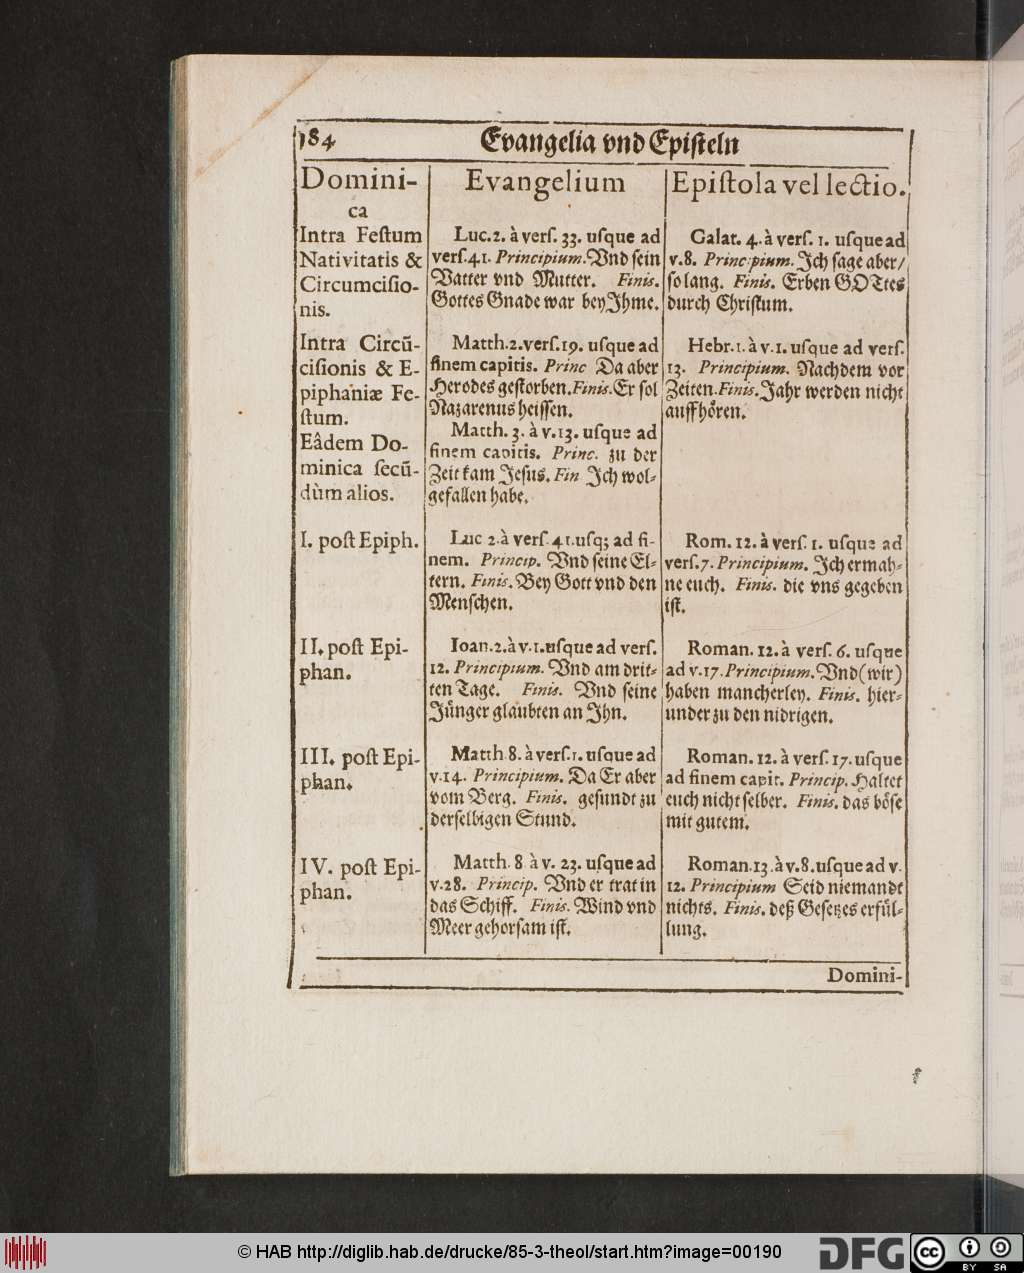 184 Evangelia vnd Episteln
Domini-
ca
Evangelium
Epiſtola vel lectio.
Intra Feſtum
Nativitatis &
Circumciſio-
nis.
Luc. 2. à verſ. 33. uſque ad
verſ. 41. Principium. Vnd ſein
Vatter vnd Mutter. Finis.
Gottes Gnade war bey Jhme.
Galat. 4. à verſ. 1. uſque ad
v. 8. Principium. Jch ſage aber/
ſo lang. Finis. Erben GOTtes
durch Chriſtum.
Intra Circũ-
ciſionis & E-
piphaniæ Fe-
ſtum.
Eâdem Do-
minica ſecũ-
dùm alios.
Matth. 2. verſ. 19. uſque ad
finem capitis. Princ Da aber
Herodes geſtorben. Finis. Er ſol
Nazarenus heiſſen.
Matth. 3. à v. 13. uſque ad
finem capitis. Princ. zu der
Zeit kam Jeſus. Fin Jch wol-
gefallen habe.
Hebr. 1. à v. 1. uſque ad verſ.
13. Principium. Nachdem vor
Zeiten. Finis. Jahr werden nicht
auffhören.
I. poſt Epiph.
Luc 2. à verſ. 41. uſq; ad fi-
nem. Princip. Vnd ſeine El-
tern. Finis. Bey Gott vnd den
Menſchen.
Rom. 12. à verſ. 1. uſque ad
verſ. 7. Principium. Jch ermah-
ne euch. Finis. die vns gegeben
iſt.
II. poſt Epi-
phan.
Ioan. 2. à v. 1. uſque ad verſ.
12. Principium. Vnd am drit-
ten Tage. Finis. Vnd ſeine
Jünger glaubten an Jhn.
Roman. 12. à verſ. 6. uſque
ad v. 17. Principium. Vnd (wir)
haben mancherley. Finis. hier-
under zu den nidrigen.
III. poſt Epi-
phan.
Matth 8. à verſ. 1. uſque ad
v. 14. Principium. Da Er aber
vom Berg. Finis. geſundt zu
derſelbigen Stund.
Roman. 12. à verſ. 17. uſque
ad finem capit. Princip. Haltet
euch nicht ſelber. Finis. das böſe
mit gutem.
IV. poſt Epi-
phan.
Matth. 8 à v. 23. uſque ad
v. 28. Princip. Vnd er trat in
das Schiff. Finis. Wind vnd
Meer gehorſam iſt.
Roman. 13. à v. 8. uſque ad v.
12. Principium Seid niemandt
nichts. Finis. deß Geſetzes erfül-
lung.
Domini-
© HAB http://diglib.hab.de/drucke/85-3-theol/start.htm?image=00190
DFG
cc BY SA